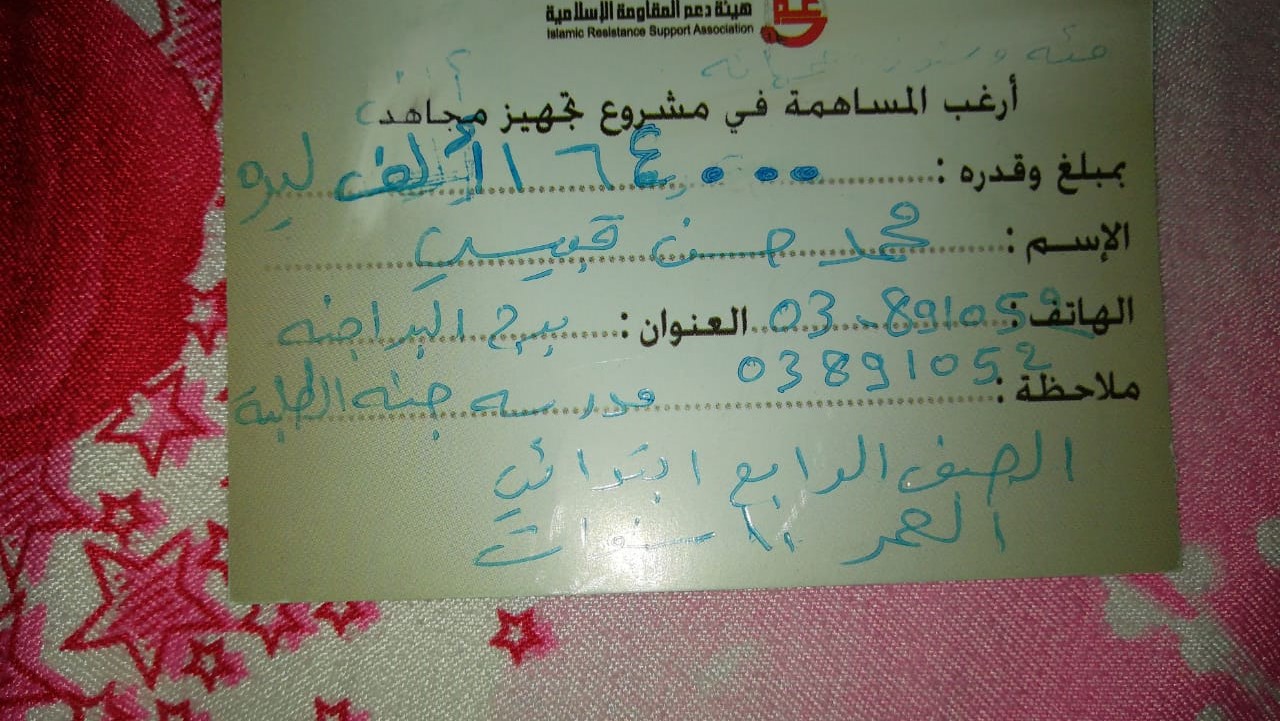 هيئة دعم المقاومة الإسلامية
Islamic Resistance Support Association
أرغب المساهمة في مشروع تجهيز مجاهد
بمبلغ وقدره : ١٦٤,٠٠٠ ألف
الإسم : محمد حسن قبيسي
الهاتف : 03-891052 العنوان : برج البراجنه
03891052
ملاحظة : مدرسه
الصف الرابع ابتدائي
العمر ١٠ سنوات